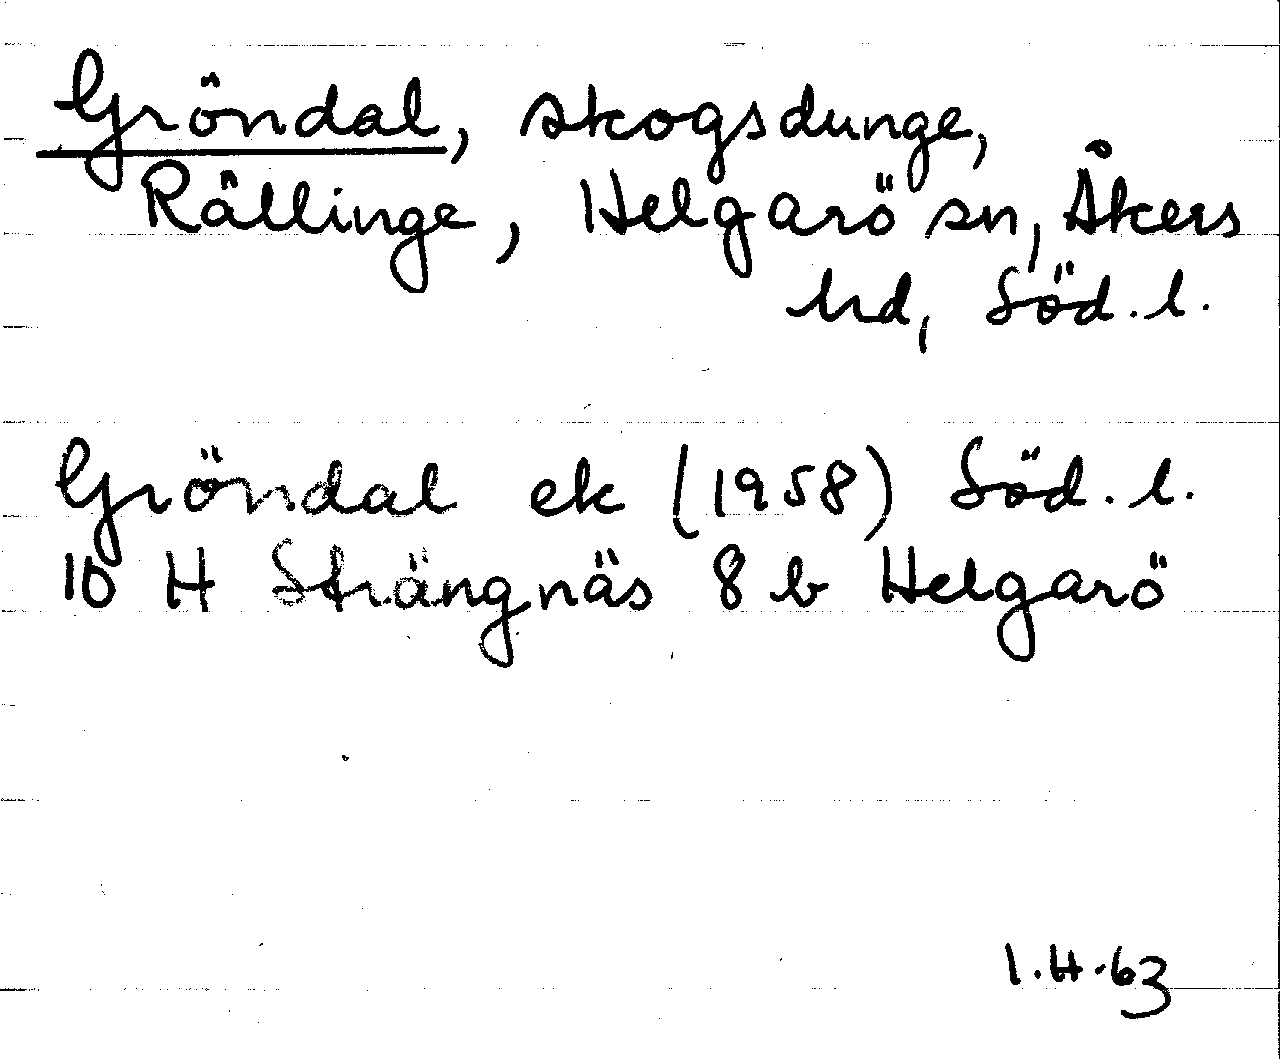 Gröndal, skogsdunge,
Rällinge, Helgarö sn, Åkers
hd, Söd. l.
Gröndal ek (1958) Söd. l.
10 H Strängnäs 8 b Helgarö
I.H.63